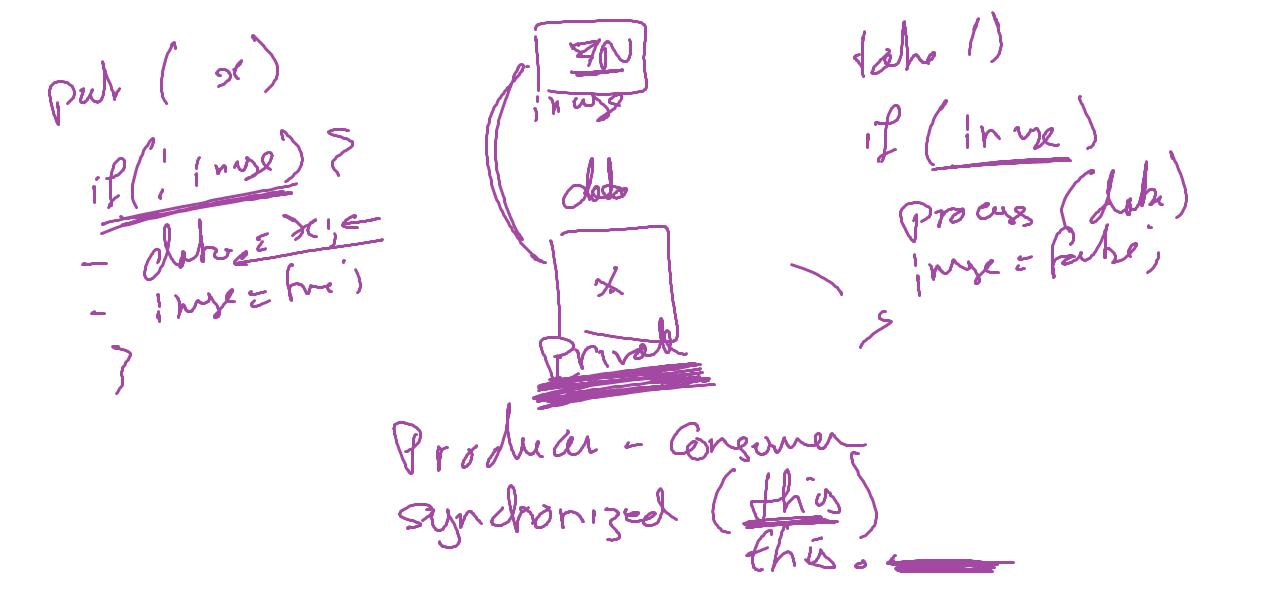 put ( x )
if ( ! inuse ) {
- data = x ;
- inuse = true ;
}
inuse
data
x
Private
take ()
if ( inuse )
process (data)
inuse = false ;
}
Producer - Consumer
synchronized (this)
this.